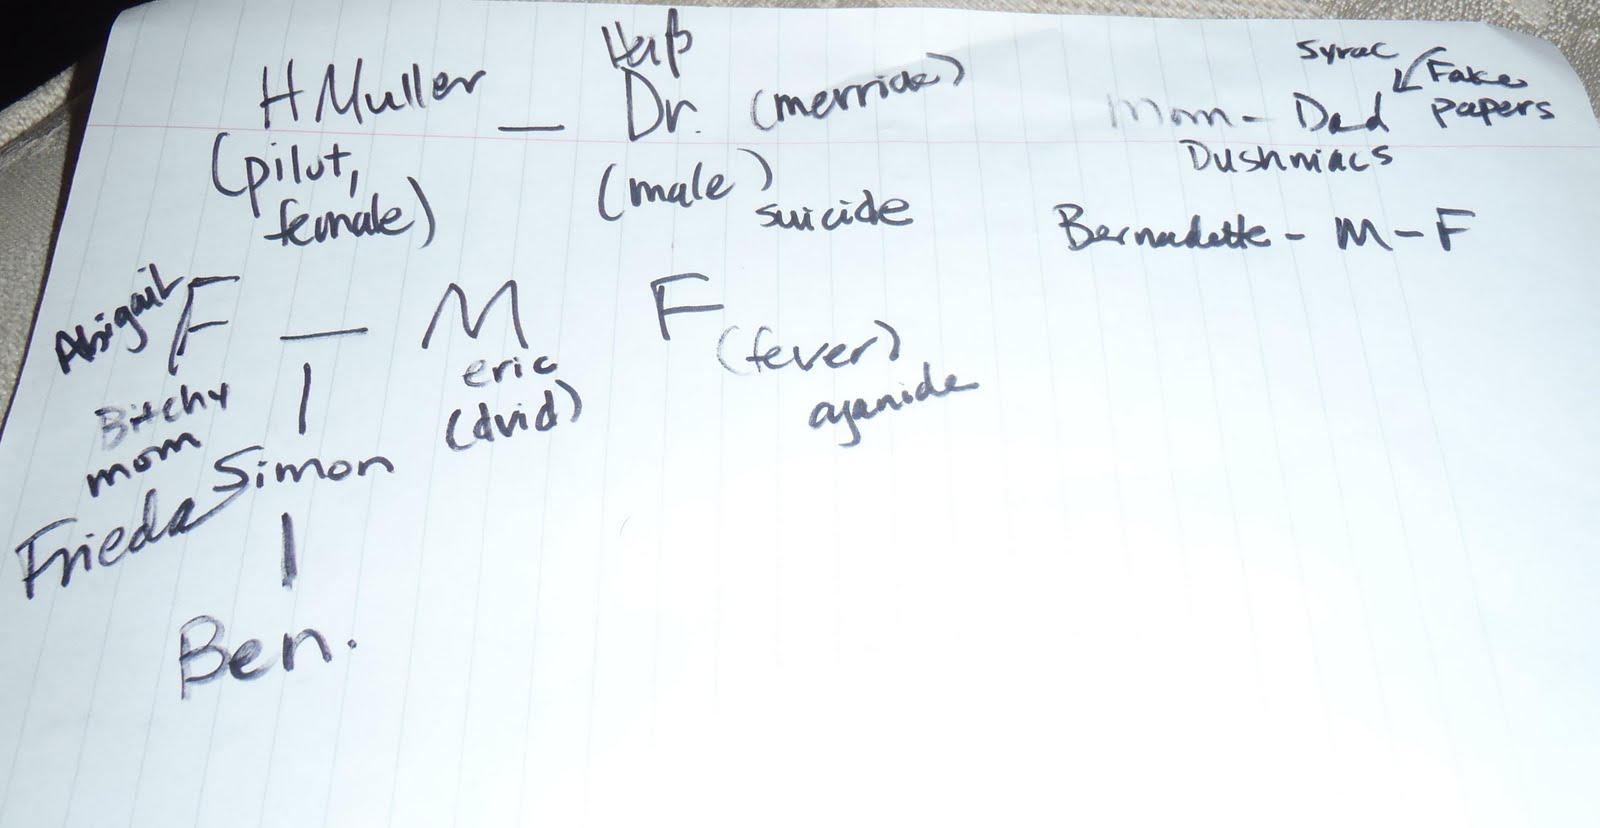 H Muller — Dr. (merride)
(pilut, female)
(male)
suicide
Syrac
Fake papers
Mom - Dad
Dushniacs
Bernadette - M - F
Abigail
F — M
F
Bitchy mom
eric
(dvid)
(fever)
cyanide
Frieda
Simon
Ben.